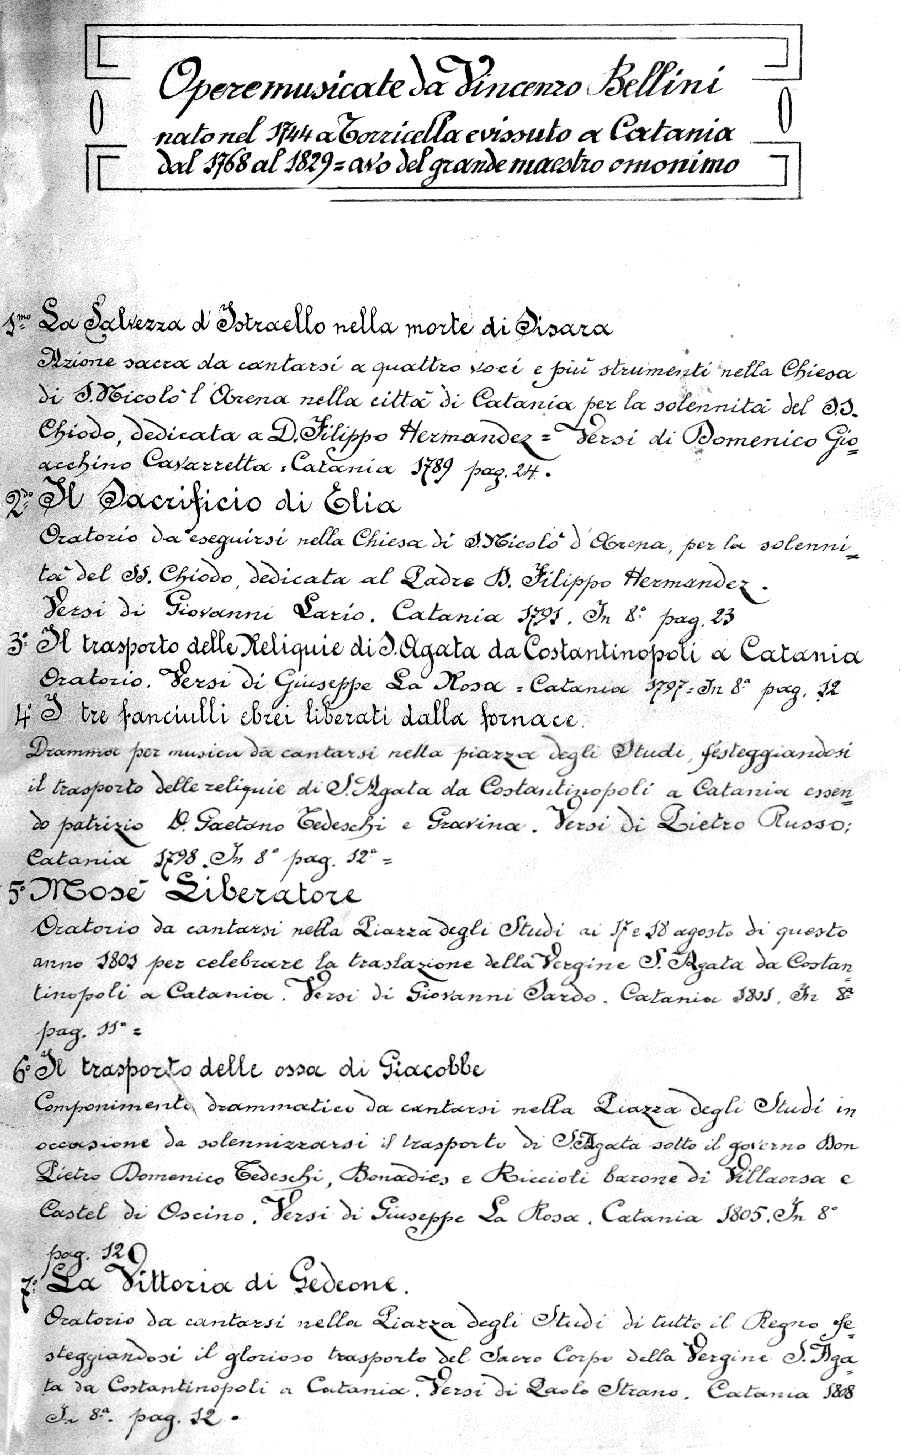 Opere musicate da Vincenzo Bellini
nato nel 1744 a Torricella e vissuto a Catania
dal 1768 al 1829 = avo del grande maestro omonimo
1mo La Salvezza d'Istraello nella morte di Sisara
Azione sacra da cantarsi a quattro voci e più strumenti nella Chiesa
di S. Nicolò l'Arena nella città di Catania per la solennità del SS.
Chiodo, dedicata a D. Filippo Hermandez = Versi di Domenico Gio=
acchino Cavarretta = Catania 1789 pag. 24.
2do Il Sacrificio di Elia
Oratorio da eseguirsi nella Chiesa di S Nicolò d'Arena, per la solenni=
tà del SS. Chiodo, dedicata al Padre D. Filippo Hermandez.
Versi di Giovanni Lario. Catania 1791. In 8° pag. 23
3° Il trasporto delle Reliquie di S. Agata da Costantinopoli a Catania
Oratorio. Versi di Giuseppe La Rosa = Catania 1797 = In 8ª pag. 12
4° I tre fanciulli ebrei liberati dalla fornace.
Dramma per musica da cantarsi nella piazza degli Studi, festeggiandosi
il trasporto delle reliquie di S. Agata da Costantinopoli a Catania essen=
do patrizio D. Gaetano Tedeschi e Gravina. Versi di Pietro Russo;
Catania 1798. In 8° pag. 12ª =
5° Mosè Liberatore
Oratorio da cantarsi nella Piazza degli Studi ai 17 e 18 agosto di questo
anno 1801 per celebrare la traslazione della Vergine S. Agata da Costan=
tinopoli a Catania. Versi di Giovanni Sardo. Catania 1801. In 8ª
pag. 11ª =
6° Il trasporto delle ossa di Giacobbe
Componimento drammatico da cantarsi nella Piazza degli Studi in
occasione da solennizzarsi il trasporto di S. Agata sotto il governo Don
Pietro Domenico Tedeschi, Bonadies e Riccioli barone di Villaorsa e
Castel di Oscino. Versi di Giuseppe La Rosa. Catania 1805. In 8°
pag. 12
7° La Vittoria di Gedeone.
Oratorio da cantarsi nella Piazza degli Studi di tutto il Regno fe=
steggiandosi il glorioso trasporto del Sacro Corpo della Vergine S. Aga=
ta da Costantinopoli a Catania. Versi di Paolo Strano. Catania 1808
In 8ª. pag. 12.